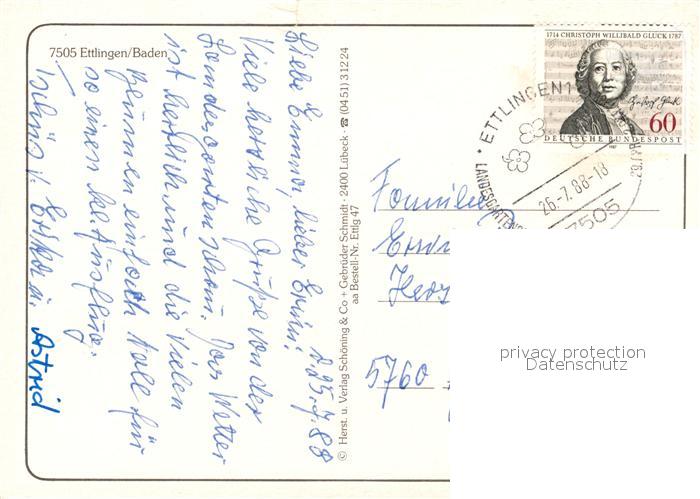 7505 Ettlingen/Baden
d. 25.7.88
Liebe Emmi, lieber Erwin!
Viele herzliche Grüße von der
Landesgarten Schau. Das Wetter
ist herrlich und die vielen
Blumen einfach toll für
so einen Ausflug.
Tschüs Erika u. Astrid
© Herst. u. Verlag Schöning & Co + Gebrüder Schmidt · 2400 Lübeck · ☎ (0451) 31224
aa Bestell-Nr. Ettlg 47
1714 CHRISTOPH WILLIBALD GLUCK 1787
60
DEUTSCHE BUNDESPOST
1987
ETTLINGEN 1
26.-7.88-18
7505
Familie
Erwin
5760
privacy protection
Datenschutz